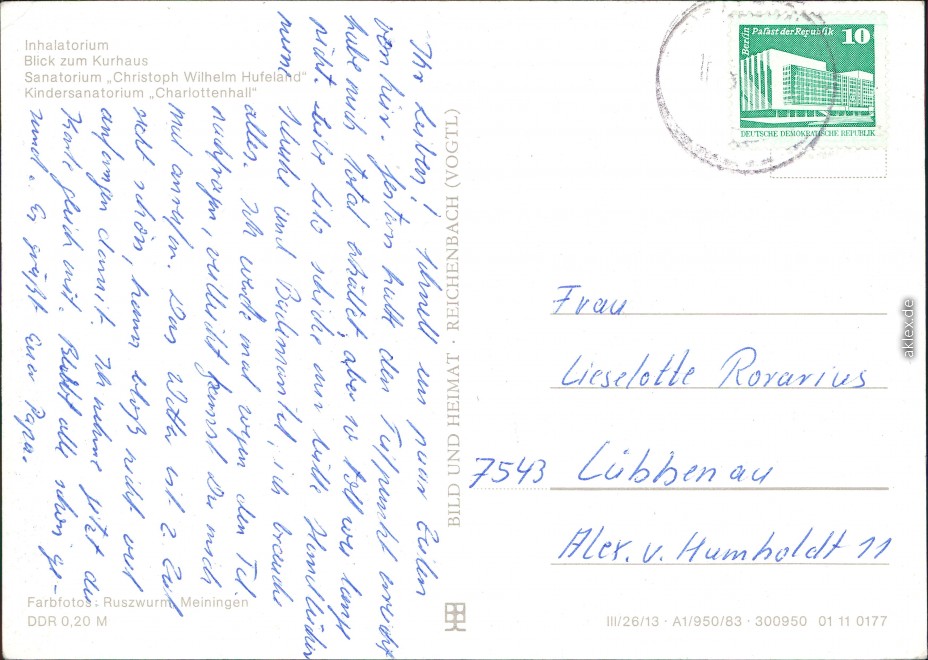 Inhalatorium
Blick zum Kurhaus
Sanatorium „Christoph Wilhelm Hufeland“
Kindersanatorium „Charlottenhall“
Ihr Lieben! Schnell ein paar Zeilen
von hier. Gestern hatte den Tiefpunkt erreicht
habe mich total erkältet, aber so toll wie sonst
nicht. Liebe Lilo schicke mir bitte
meine Schuhe und Bademantel, ich brauche
alles. Ich werde mal wegen den Tel.
nachfragen, vielleicht kannst Du mich
mal anrufen. Das Wetter ist z. Zeit
recht schön, kann bloß nicht viel
anfangen damit. Ich nehme jetzt die
Karte gleich mit. Bleibt alle schön ge-
sund. Es grüßt Euer Papa.
Farbfotos: Ruszwurm, Meiningen
DDR 0,20 M
BILD UND HEIMAT · REICHENBACH (VOGTL)
Berlin
Palast der Republik
10
DEUTSCHE DEMOKRATISCHE REPUBLIK
Frau
Lieselotte Rorarius
7543 Lübbenau
Alex. v. Humboldt 11
III/26/13 · A1/950/83 · 300950 01 11 0177
aklex.de